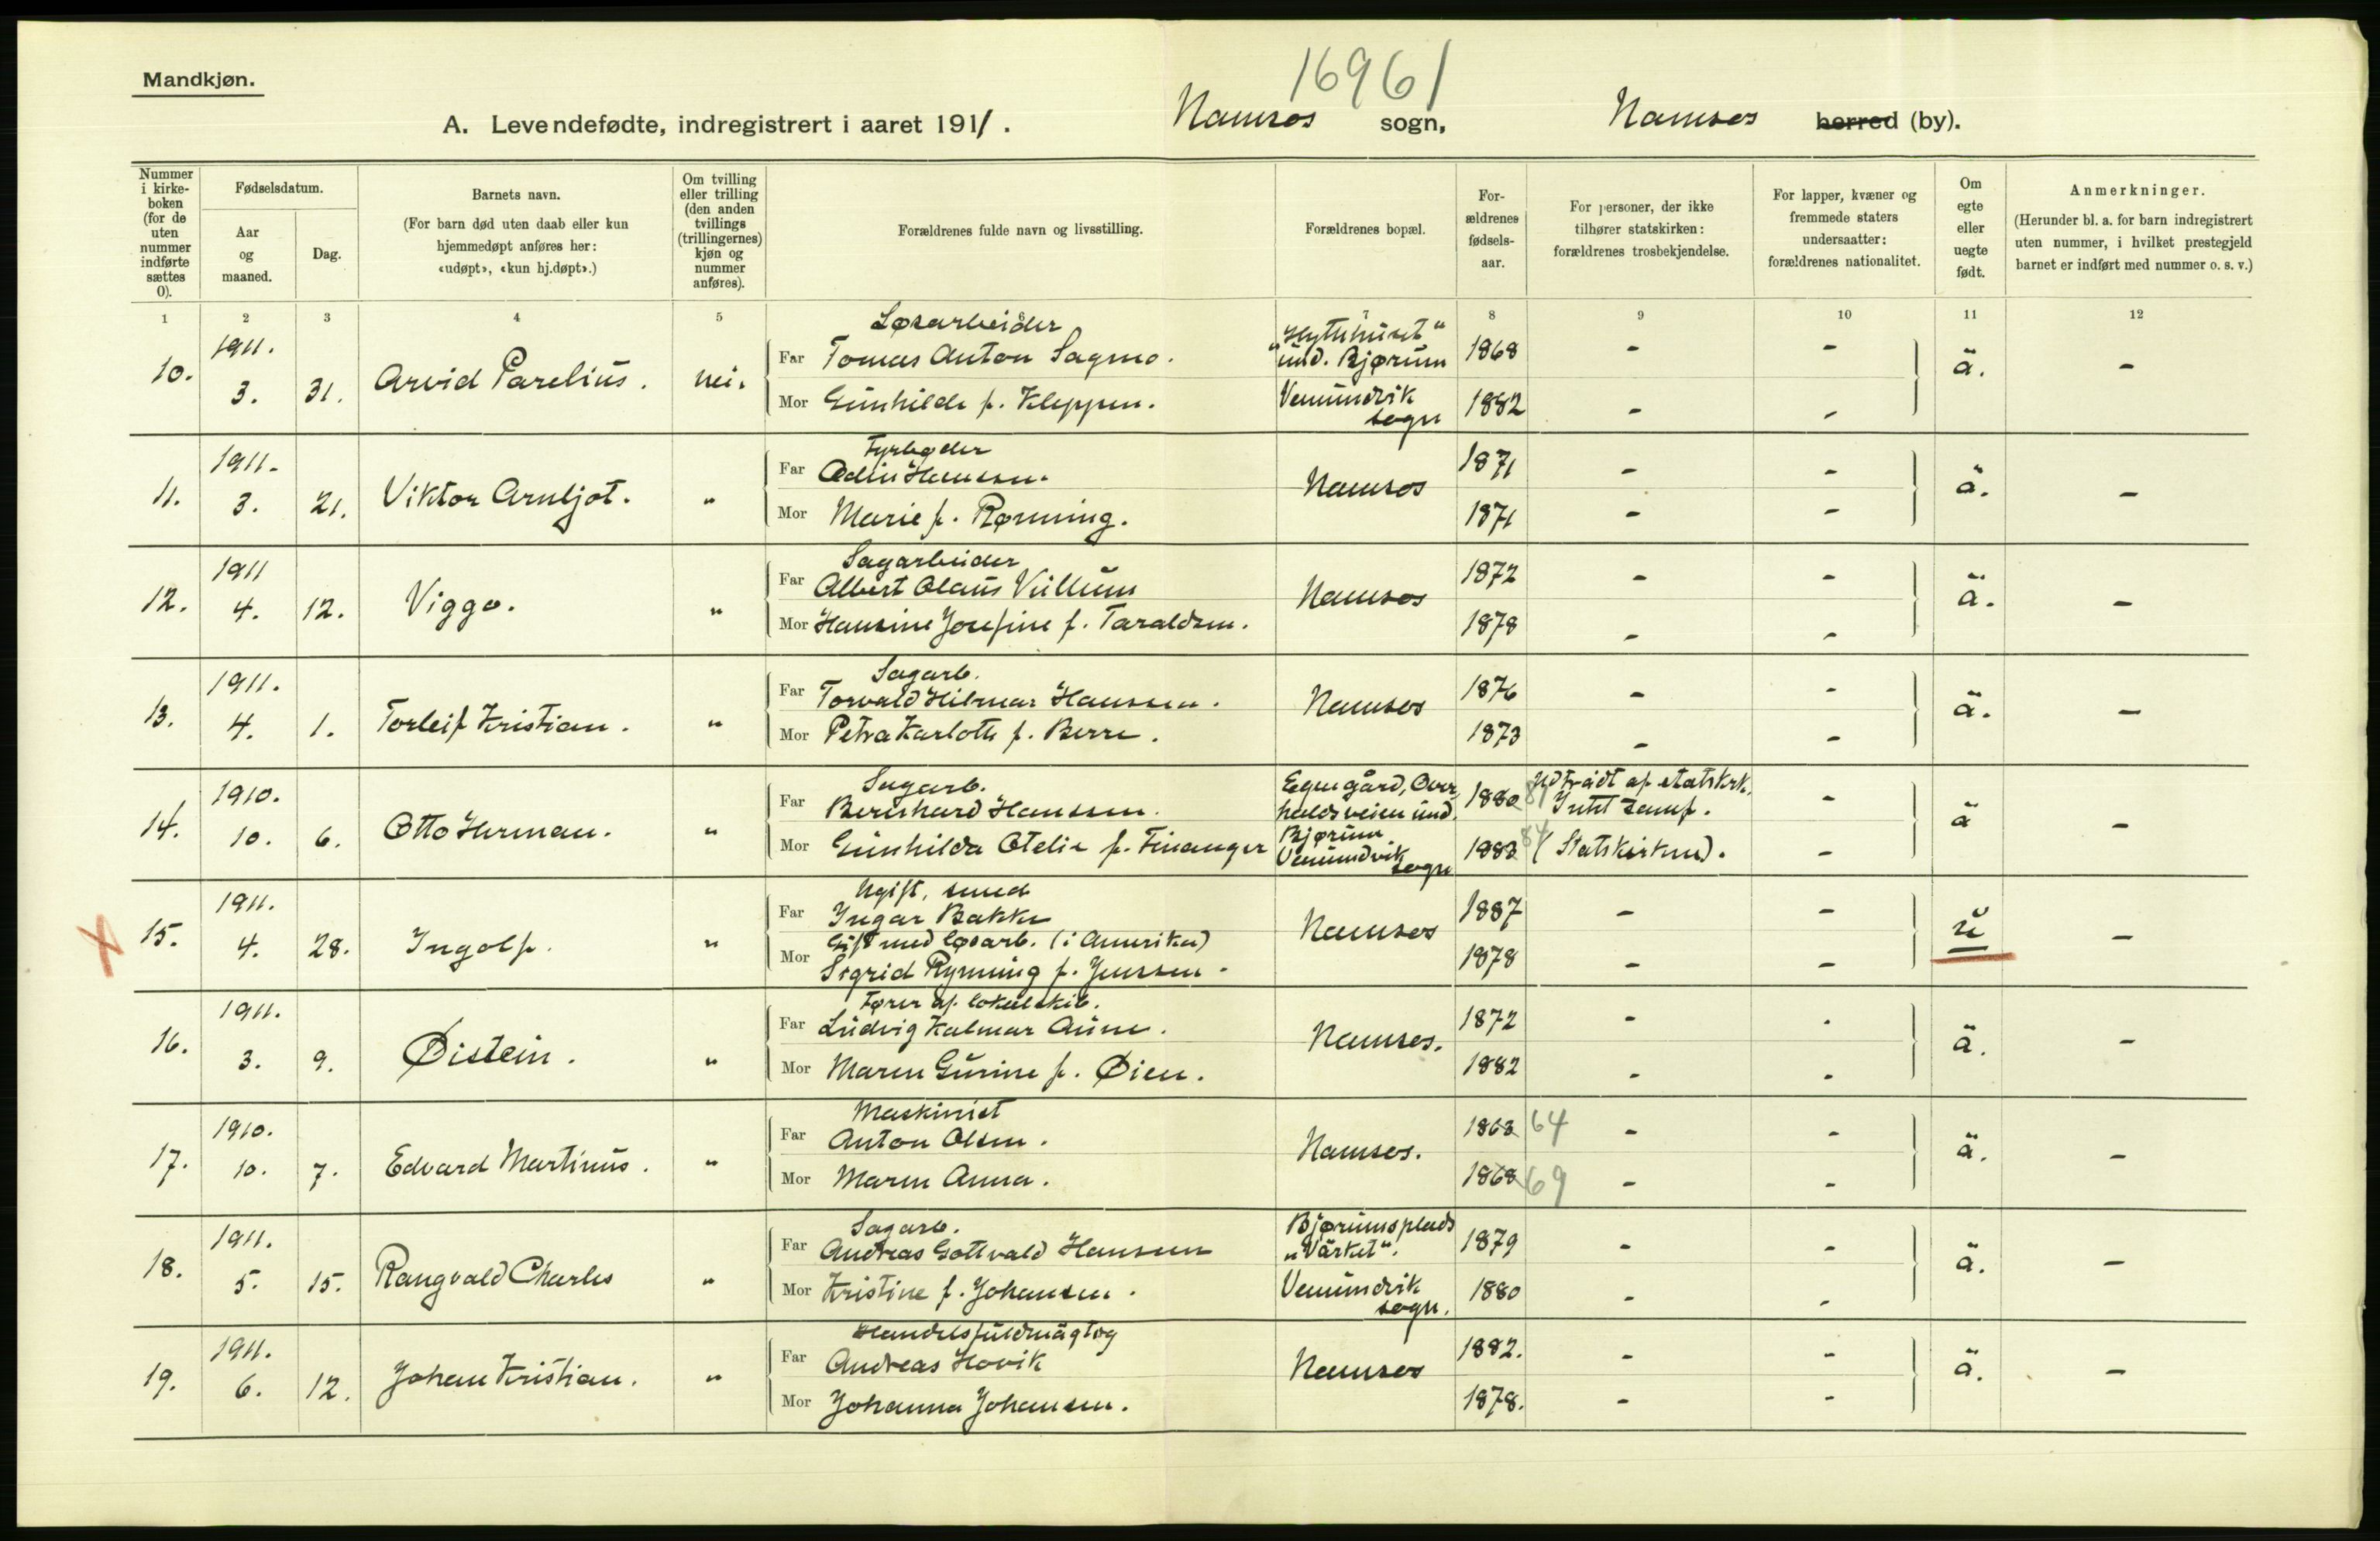 16961
Mandkjøn.
A. Levendefødte, indregistrert i aaret 1911. Namsos sogn, Namsos herred (by).
Nummer i kirkeboken (for de uten nummer indførte sættes 0).
Fødselsdatum.
Aar og maaned.
Dag.
Barnets navn.
(For barn død uten daab eller kun hjemmedøpt anføres her: «udøpt», «kun hj.døpt».)
Om tvilling eller trilling (den anden tvillings (trillingernes) kjøn og nummer anføres).
Forældrenes fulde navn og livsstilling.
Forældrenes bopæl.
Forældrenes fødselsaar.
For personer, der ikke tilhører statskirken: forældrenes trosbekjendelse.
For lapper, kvæner og fremmede staters undersaatter: forældrenes nationalitet.
Om egte eller uegte født.
Anmerkninger.
(Herunder bl. a. for barn indregistrert uten nummer, i hvilket prestegjeld barnet er indført med nummer o. s. v.)
1 2 3 4 5 6 7 8 9 10 11 12
10. 1911. 3. 31. Arvid Parelius. nei.
Løsarbeider
Far Tomas Anton Sagmo. "Hyttehuset" und. Bjørum 1868 - - ä. -
Mor Gunhilde f. Kleppen. Vemundvik sogn 1882 - -
11. 1911. 3. 21. Viktor Arnljot. "
Fyrbøder
Far Odin Hanssen. Namsos 1871 - - ä. -
Mor Marie f. Rønning. 1871 - -
12. 1911 4. 12. Viggo. "
Sagarbeider
Far Albert Olaus Villum Namsos 1872 - - ä. -
Mor Hansine Josefine f. Taraldsen. 1878 - -
13. 1911. 4. 1. Torleif Kristian. "
Sagarb.
Far Torvald Hilmar Hanssen. Namsos 1876 - - ä. -
Mor Petra Karlotte f. Berre. 1873 - -
14. 1910. 10. 6. Otto Herman. "
Sagarb.
Far Bernhard Hanssen. Egen gård, Overhaldsveien und. 1880 81 Udtrådt af statskrk. Intet samf. - ä -
Mor Gunhilda Otelie f. Finanger Bjørum Vemundvik sogn 1883 84 (Statskirken). -
15. 1911. 4. 28. Ingolf. "
Ugift, smed
Far Ingar Bakke Namsos 1887 - - u -
Gift med løsarb. (i Amerika)
Mor Sigrid Rymning f. Jenssen. 1878 - -
16. 1911. 3. 9. Øistein. "
Fører af lokalskib.
Far Ludvig Kalmar Aune. Namsos. 1872 - - ä. -
Mor Maren Gurine f. Øien. 1882 - -
17. 1910. 10. 7. Edvard Martinus. "
Maskinist
Far Anton Olsen. Namsos. 1863 64 - - ä. -
Mor Maren Anna. 1868 69 - -
18. 1911. 5. 15. Rangvald Charles "
Sagarb.
Far Andreas Gottvald Hansen Bjørumsplads "Värket". 1879 - - ä. -
Mor Kristine f. Johansen. Vemundvik sogn. 1880 - -
19. 1911. 6. 12. Johan Kristian. "
Handelsfuldmägtig
Far Andreas Hovik Namsos 1882. - - ä. -
Mor Johanna Johansen. 1878. - -